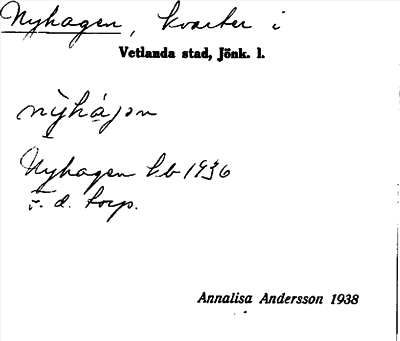 Nyhagen, kvarter i
Vetlanda stad, Jönk. l.
nỳháʃɔn
Nyhagen kb 1936
f. d. torp.
Annalisa Andersson 1938